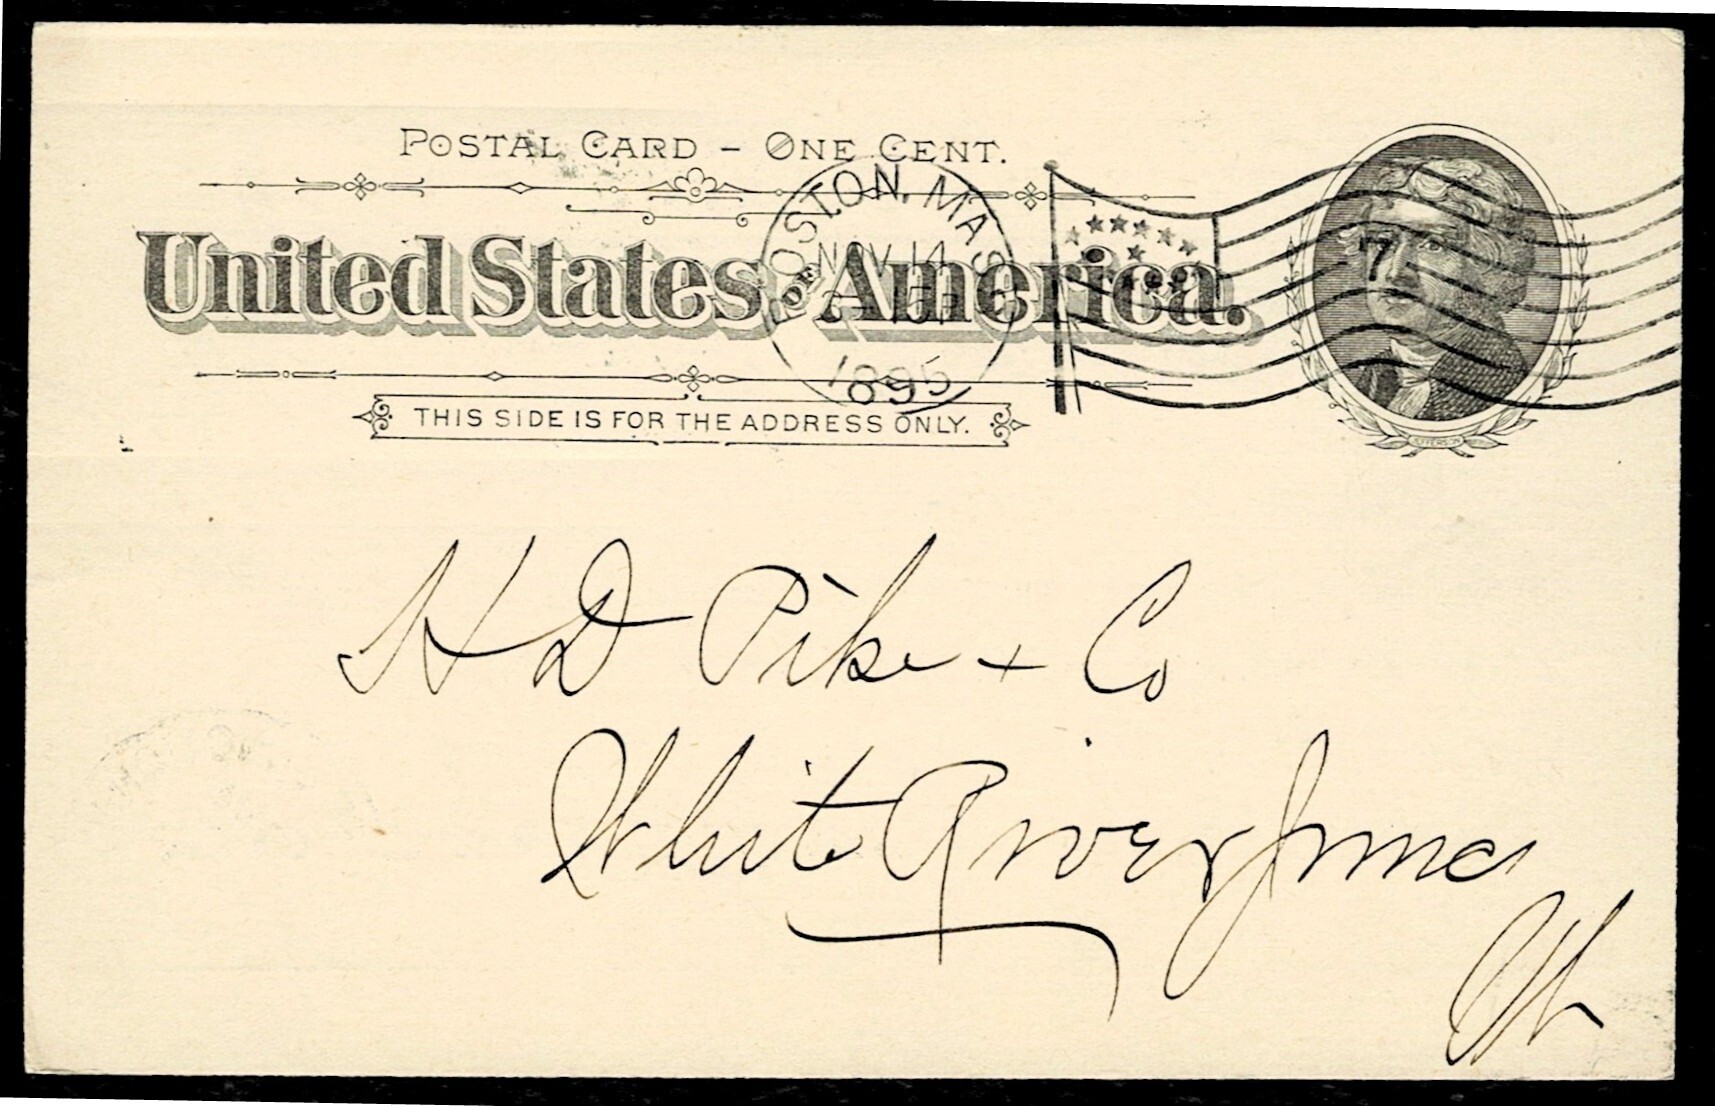 POSTAL CARD – ONE CENT.
United States OF America.
THIS SIDE IS FOR THE ADDRESS ONLY.
BOSTON, MASS
NOV 14
1895
7
JEFFERSON
H D Pike + Co
White River Junc
Vt